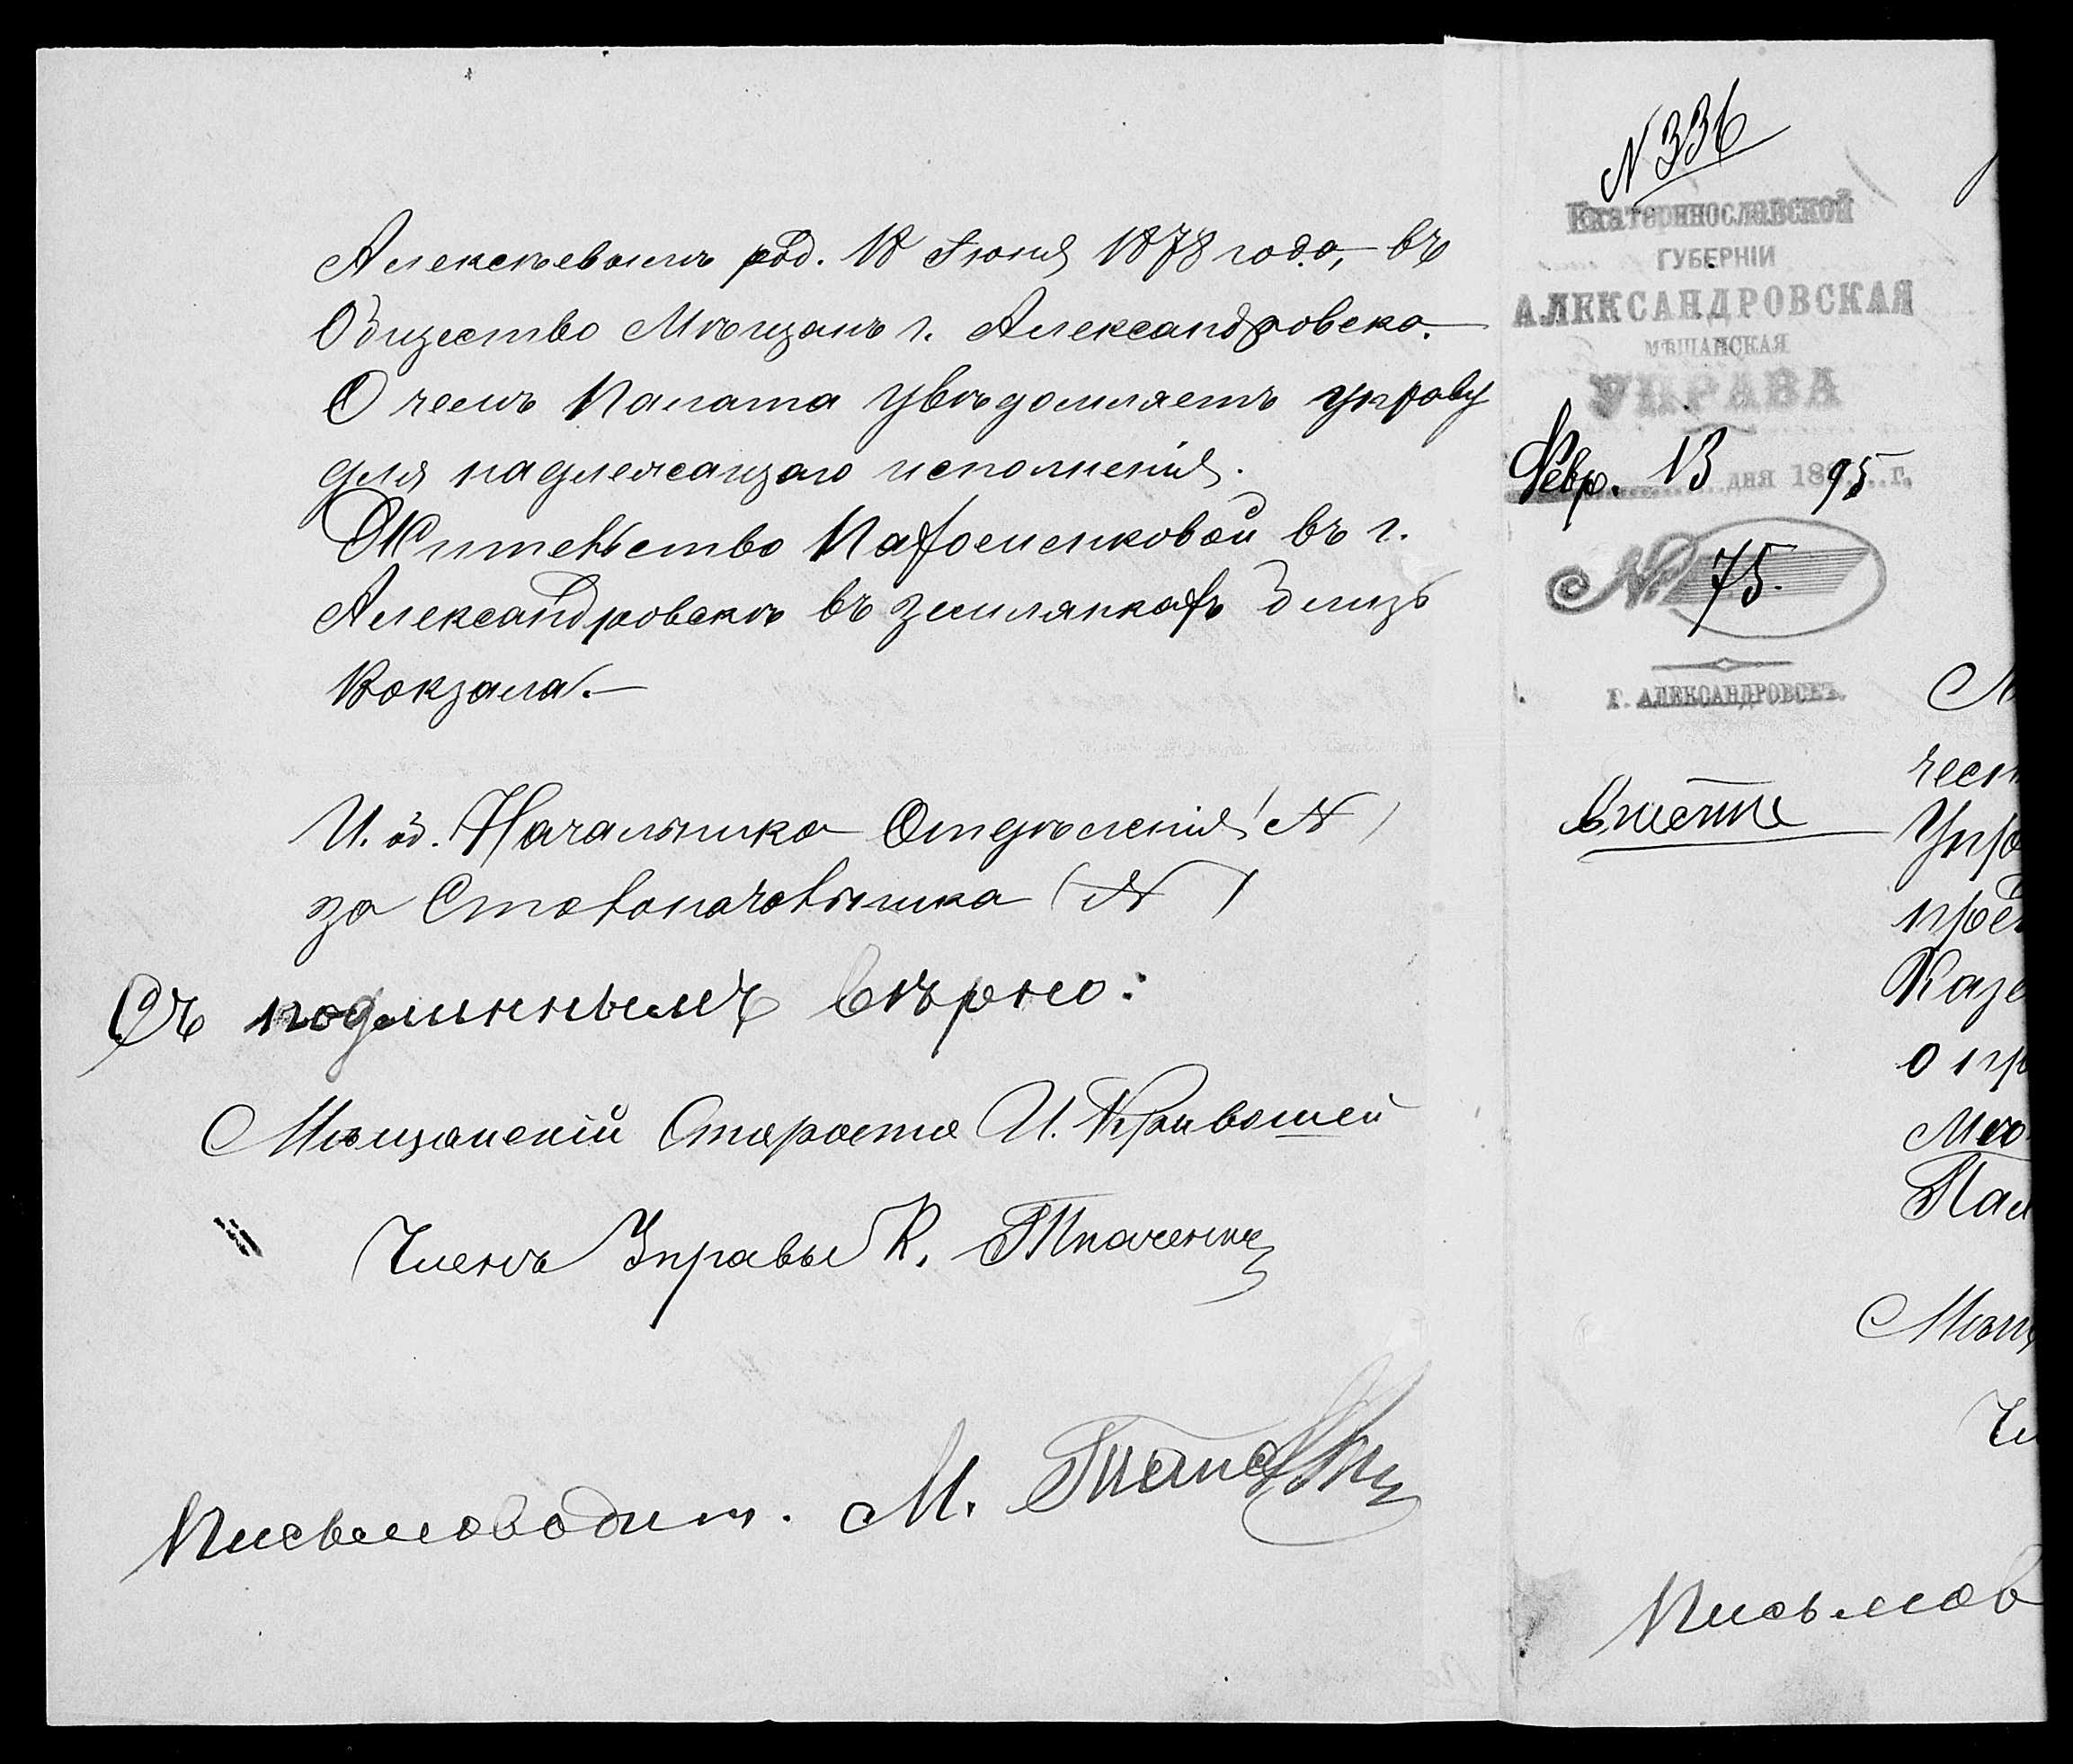 Алексѣевымъ род. 18 Іюня 1878 года, въ
Общество Мѣщанъ г. Александровска.
О чемъ Палата увѣдомляетъ управу
для надлежащаго исполненія.
Жительство Пахоменковой въ г.
Александровскѣ въ землянкахъ близь
Вокзала.—
И. об. Начальника Отдѣленія (N)
за Столоначальника (N)
Съ подлиннымъ вѣрно:
Мѣщанскій Староста И. Кривошей
" Членъ Управы К. Ткаченко
Письмоводит. М.
N 336
Екатеринославской
ГУБЕРНІИ
АЛЕКСАНДРОВСКАЯ
МѢЩАНСКАЯ
УПРАВА
Февр. 13 дня 1895 г.
№ 75.
Г. АЛЕКСАНДРОВСКЪ.
Упра
Казе
о пр
Пал
Мѣщ
Чл
Письмов